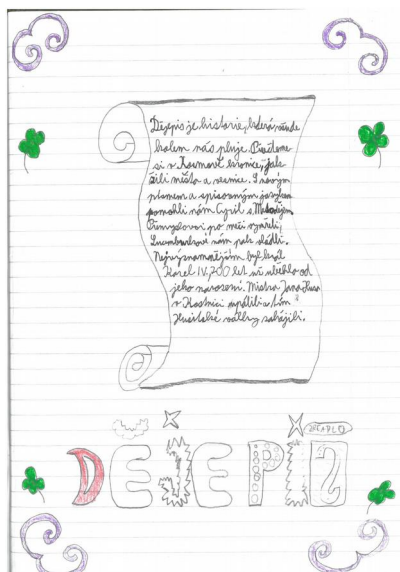 Dějepis je historie, která všude
kolem nás pluje. Přečteme
si v Kosmově kronice, jak
žili města a vesnice. S novým
písmem a spisovným jazykem
pomohli nám Cyril s Metodějem.
Přemyslovci po meči vymřeli,
Lucemburkové nám pak vládli.
Nejvýznamnějším byl král
Karel IV, 700 let už uběhlo od
jeho narození. Mistra Jana Husa
v Kostnici upálili a tím
Husitské války zahájili.
DĚJEPIS